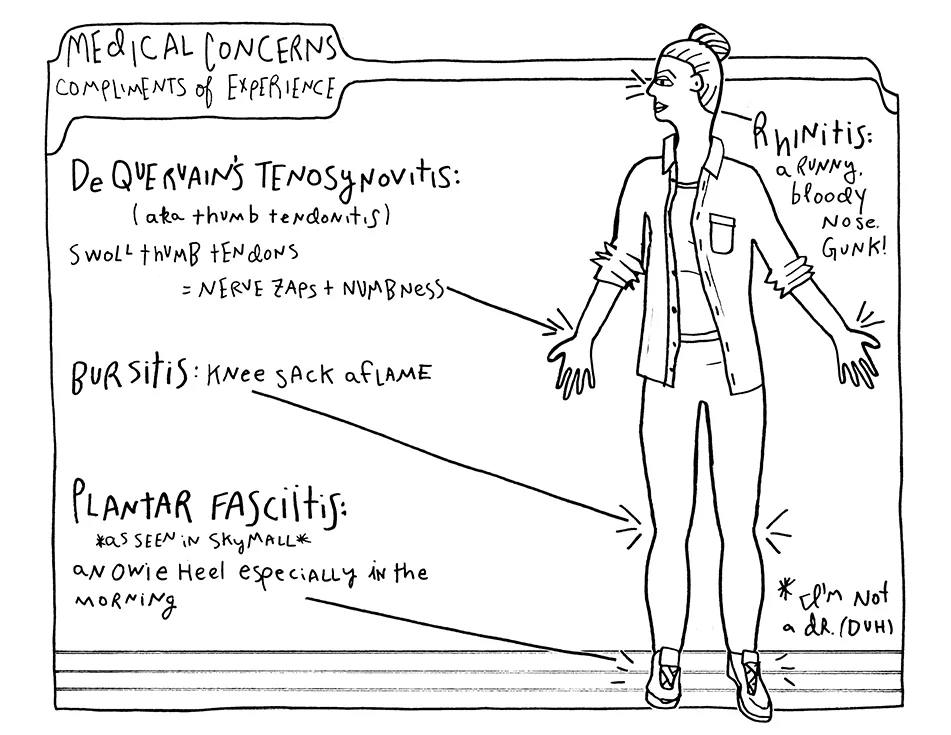 MEdICAL CONCERNS
COMPLIMENTS of EXPERIENCE
De QUERVAIN'S TENOSyNOVITIS:
(aka thumb tendonitis)
SWOLL thUMB tENdONS
= NERVE ZAPS + NUMBNESS
BURSitiS: KNee SACK aFLAME
PLANTAR FASCiitiS:
*aS SEEN iN SKyMALL*
aN OWie Heel especiALLy iN the
MORNiNg
RhiNitis:
a RUNNy,
bloody
NOSE.
GUNK!
*I'M Not
a dR. (DUH)